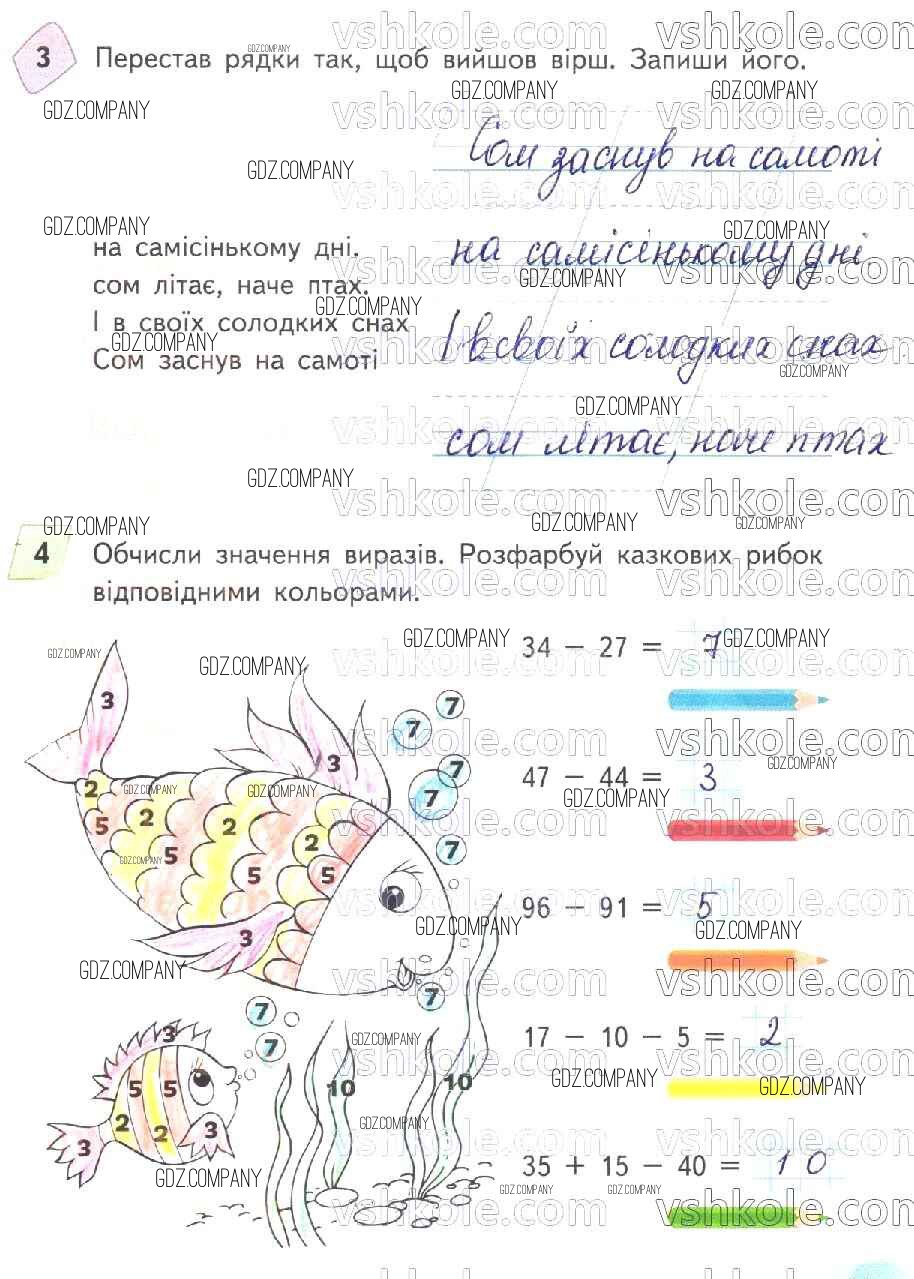 3 Перестав рядки так, щоб вийшов вірш. Запиши його.
на самісінькому дні.
сом літає, наче птах.
І в своїх солодких снах
Сом заснув на самоті
Сом заснув на самоті
на самісінькому дні
І в своїх солодких снах
сом літає, наче птах
4 Обчисли значення виразів. Розфарбуй казкових рибок
відповідними кольорами.
34 − 27 = 7
47 − 44 = 3
96 − 91 = 5
17 − 10 − 5 = 2
35 + 15 − 40 = 10
3
3
7
7
7
7
7
2
2
2
2
5
5
5
5
3
7
7
7
3
5
5
2
2
3
3
10
10
GDZ.COMPANY
vshkole.com